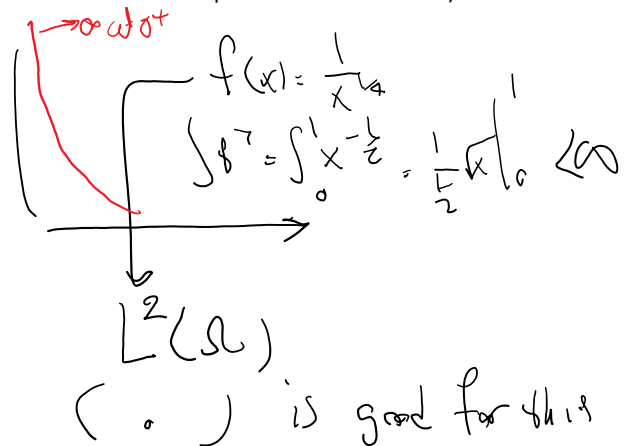 → ∞ at 0⁺
f(x) = 1/x^{1/4}
∫f² = ∫₀¹ x^{-1/2} = 1/(1/2) √x |₀¹ < ∞
L²(Ω)
( . ) is good for this